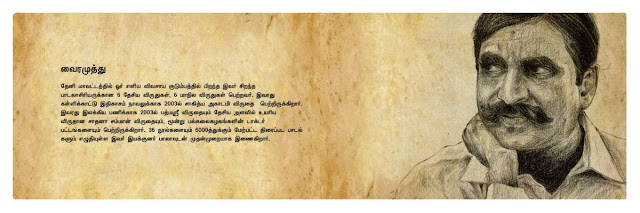 வைரமுத்து
தேனி மாவட்டத்தில் ஓர் எளிய விவசாய குடும்பத்தில் பிறந்த இவர் சிறந்த
பாடலாசிரியருக்கான 6 தேசிய விருதுகள், 6 மாநில விருதுகள் பெற்றவர். இவரது
கள்ளிக்காட்டு இதிகாசம் நாவலுக்காக 2003ல் சாகித்ய அகாடமி விருதை பெற்றிருக்கிறார்.
இவரது இலக்கிய பணிக்காக 2003ல் பத்மஸ்ரீ விருதையும் தேசிய அளவில் உயரிய
விருதான சாதனா சம்மான் விருதையும், மூன்று பல்கலைகழகங்களின் டாக்டர்
பட்டங்களையும் பெற்றிருக்கிறார். 36 நூல்களையும் 6000த்துக்கும் மேற்பட்ட திரைப்பட பாடல்
களும் எழுதியுள்ள இவர் இயக்குனர் பாலாவுடன் முதன்முறையாக இணைகிறார்.